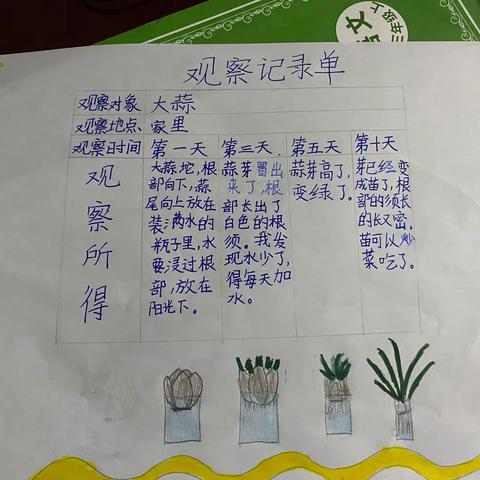 文
观察记录单
观察对象 大蒜
观察地点 家里
观察时间 第一天 第三天. 第五天 第十天
观
察
所
得
大蒜坨,根
部向下,蒜
尾向上放在
装满水的
瓶子里,水
要浸过根
部,放在
阳光下。
蒜芽冒出
来了,根
部长出了
白色的根
须。我发
现水少了,
得每天加
水。
蒜芽高了,
变绿了。
芽已经变
成苗了,根
部的须长
的长又密。
苗可以炒
菜吃了。